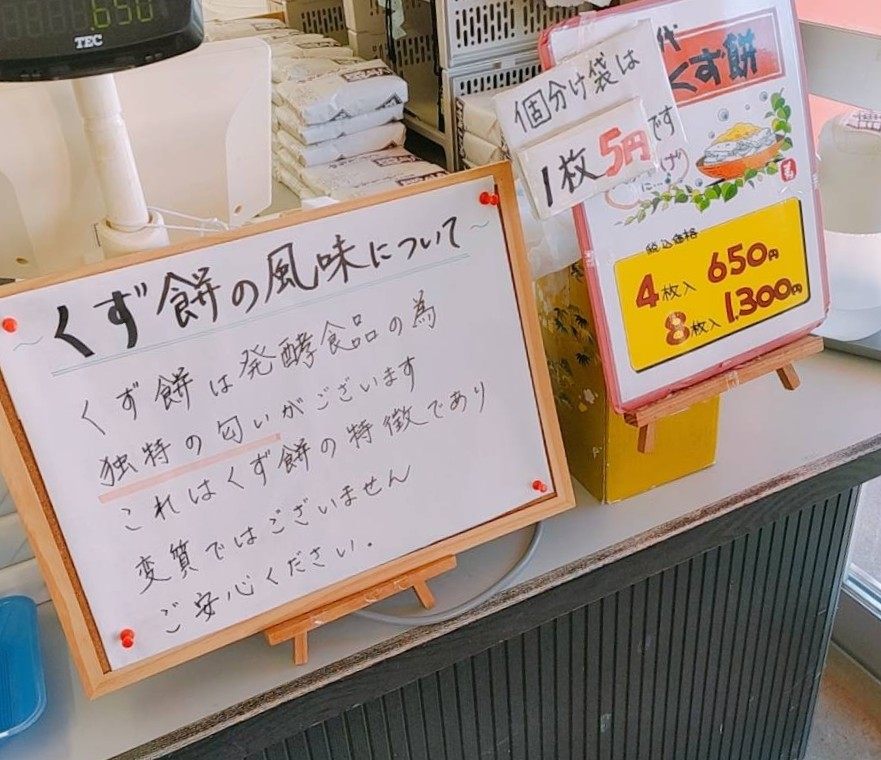 650
TEC
~くず餅の風味について~
くず餅は発酵食品の為
独特の匂いがございます
これはくず餅の特徴であり
変質ではございません
ご安心ください。
個分け袋は
1枚5円です
代
くず餅
税込価格
4枚入 650円
8枚入 1.300円